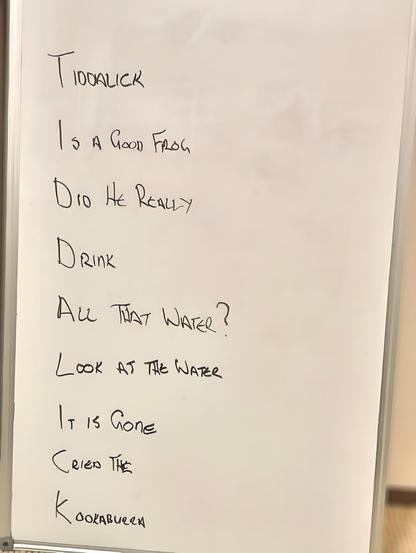 TIDDALICK
IS A GOOD FROG
DID HE REALLY
DRINK
ALL THAT WATER?
LOOK AT THE WATER
IT IS GONE
CRIED THE
KOOKABURRA